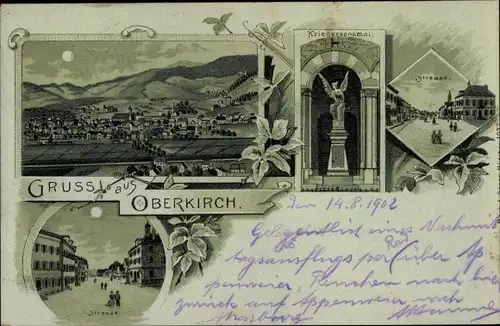 Kriegerdenkmal.
Strasse.
GRUSS aus
OBERKIRCH.
Strasse
den 14.8.1902
Gelegentlich eines Nachmit
tagsausflugs per über Ap
penweier, Renchen nach hier
zurück auf Appenweier nach
Strasbourg